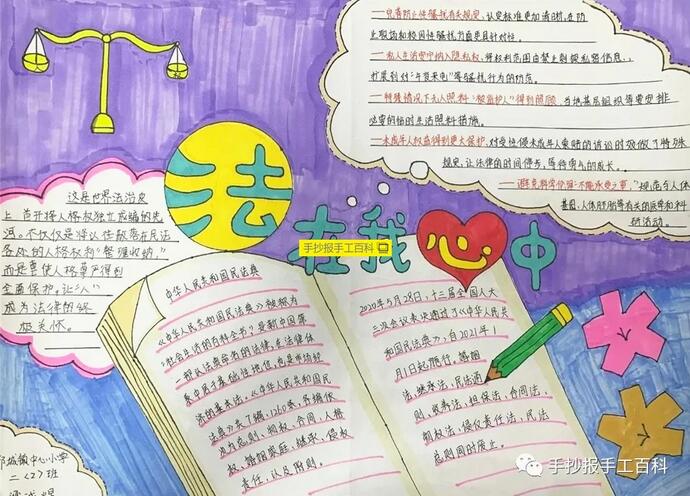 一完善防止性骚扰有关规定，认定标准更加清晰，在防
止职场和校园性骚扰方面更具针对性。
一私人生活安宁纳入隐私权，将权利范围由禁止刺探私密信息，
扩展到对"午夜来电"等骚扰行为的防范。
一特殊情况下无人照料"被监护人"得到照顾，当地基层组织等要安排
必要的临时生活照料措施。
一未成年人权益得到更大保护，对受性侵未成年人索赔的诉讼时效做了特殊
规定，让法律的时间停步，等待勇气的成长。
一避免科学伦理"不能承受之重"，规范与人体
基因、人体胚胎等有关的医学和科
研活动。
这是世界法治史
上首开将人格权独立成编的先
河。不仅仅是将以往散落在民法
各处的人格权利"整理收纳，"
而是要使人格尊严得到
全面保护，让"人"
成为法律的终
极关怀。
法在我心中
手抄报手工百科
中华人民共和国民法典
《中华人民共和国民法典》被称为
"社会生活的百科全书"是新中国第
一部以法典命名的法律，在法律体
系中居于基础性地位，也是市场经
济的基本法。《中华人民共和国民
法典》共7编、1260条，各编依
次为总则、物权、合同、人格
权、婚姻家庭、继承、侵权
责任、以及附则。
2020年5月28日，十三届全国人大
三次会议表决通过了《中华人民共
和国民法典》，自2021年1
月1日起施行。婚姻
法、继承法、民法通
则、收养法、担保法、合同法、
物权法、侵权责任法、民法
总则同时废止。
城镇中心小学
二〈2〉班
手抄报手工百科